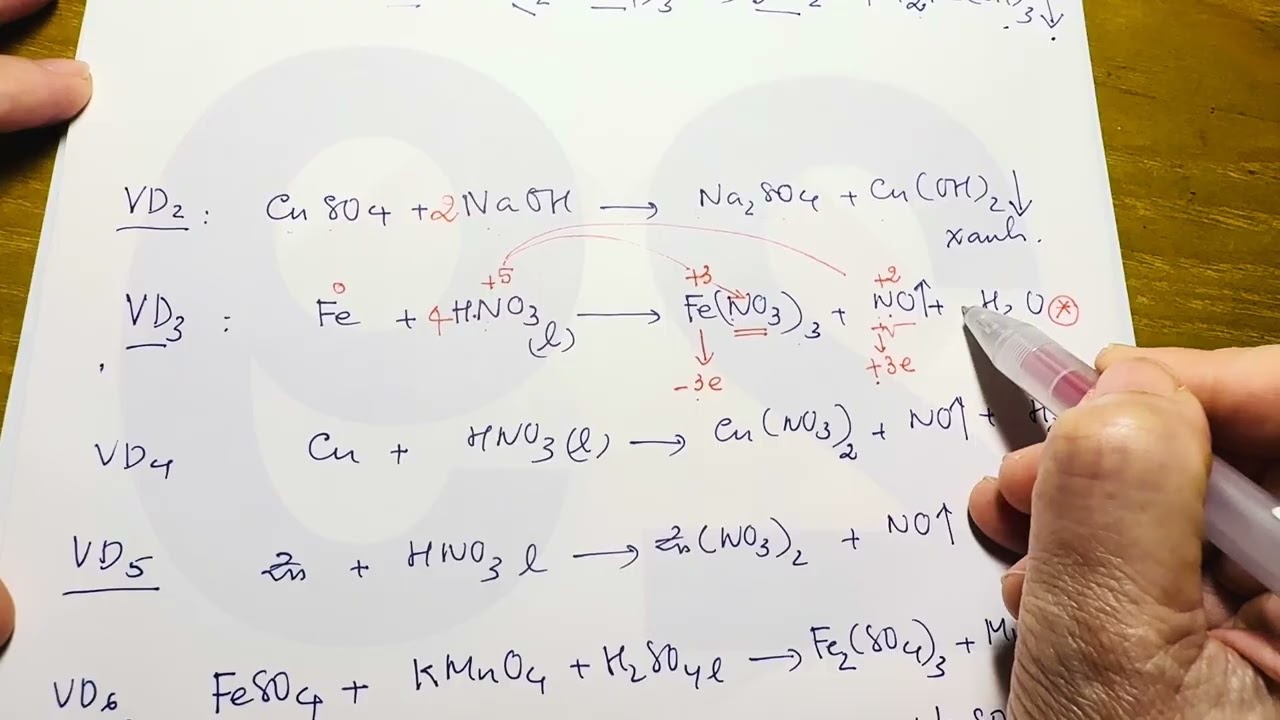 VD2 : CuSO4 + 2NaOH → Na2SO4 + Cu(OH)2↓
xanh.
0 +5 +3 +2
VD3 : Fe + 4HNO3 (l) → Fe(NO3)3 + NO↑ + H2O *
-3e +3e
VD4 Cu + HNO3(l) → Cu(NO3)2 + NO↑ +
VD5 Zn + HNO3 l → Zn(NO3)2 + NO↑
VD6 FeSO4 + KMnO4 + H2SO4 l → Fe2(SO4)3 +